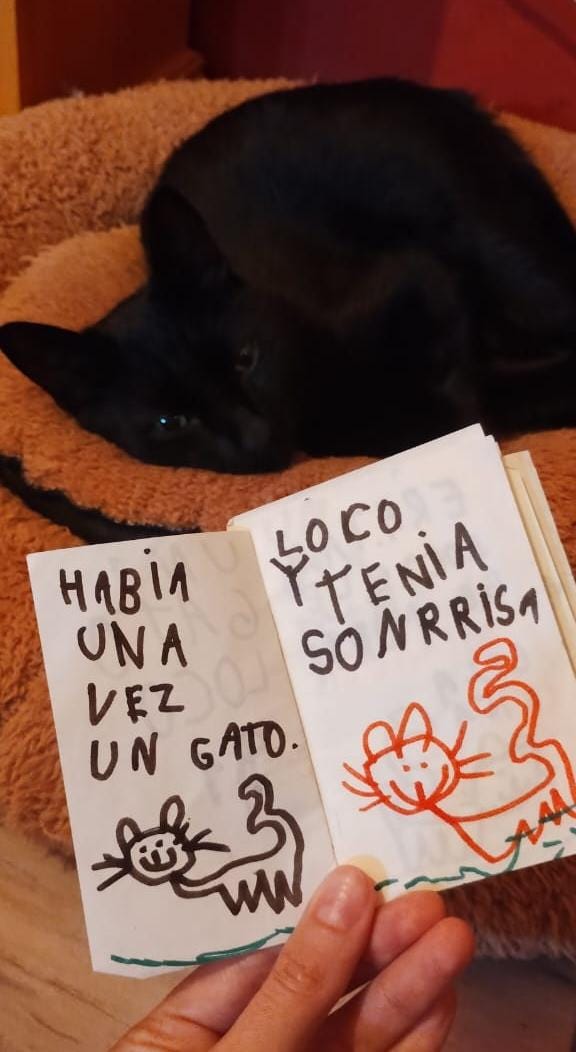 HABIA
UNA
VEZ
UN GATO.
LOCO
Y TENIA
SONRRISA